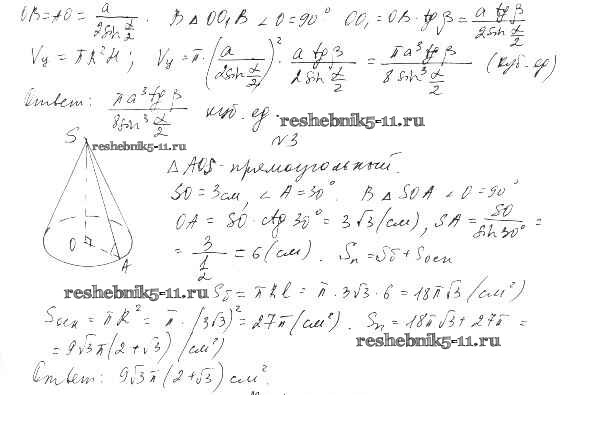 OB = AO = a / (2 sin α/2). В Δ OO₁B ∠O = 90° OO₁ = OB · tg β = a tg β / (2 sin α/2)
Vц = πR²H; Vц = π · (a / (2 sin α/2))² · a tg β / (2 sin α/2) = πa³ tg β / (8 sin³ α/2) (куб. ед)
Ответ: πa³ tg β / (8 sin³ α/2) куб. ед.
reshebnik5-11.ru
№3
S
reshebnik5-11.ru
Δ AOS - прямоугольный.
SO = 3 см, ∠A = 30°. В Δ SOA ∠O = 90°
OA = SO · ctg 30° = 3√3 (см), SA = SO / sin 30° =
O
A
= 3 / (1/2) = 6 (см). Sп = Sб + Sосн
reshebnik5-11.ru
Sб = πRl = π · 3√3 · 6 = 18π√3 (см²)
Sосн = πR² = π · (3√3)² = 27π (см²). Sп = 18π√3 + 27π =
reshebnik5-11.ru
= 9√3π(2 + √3) (см²)
Ответ: 9√3π(2 + √3) см².